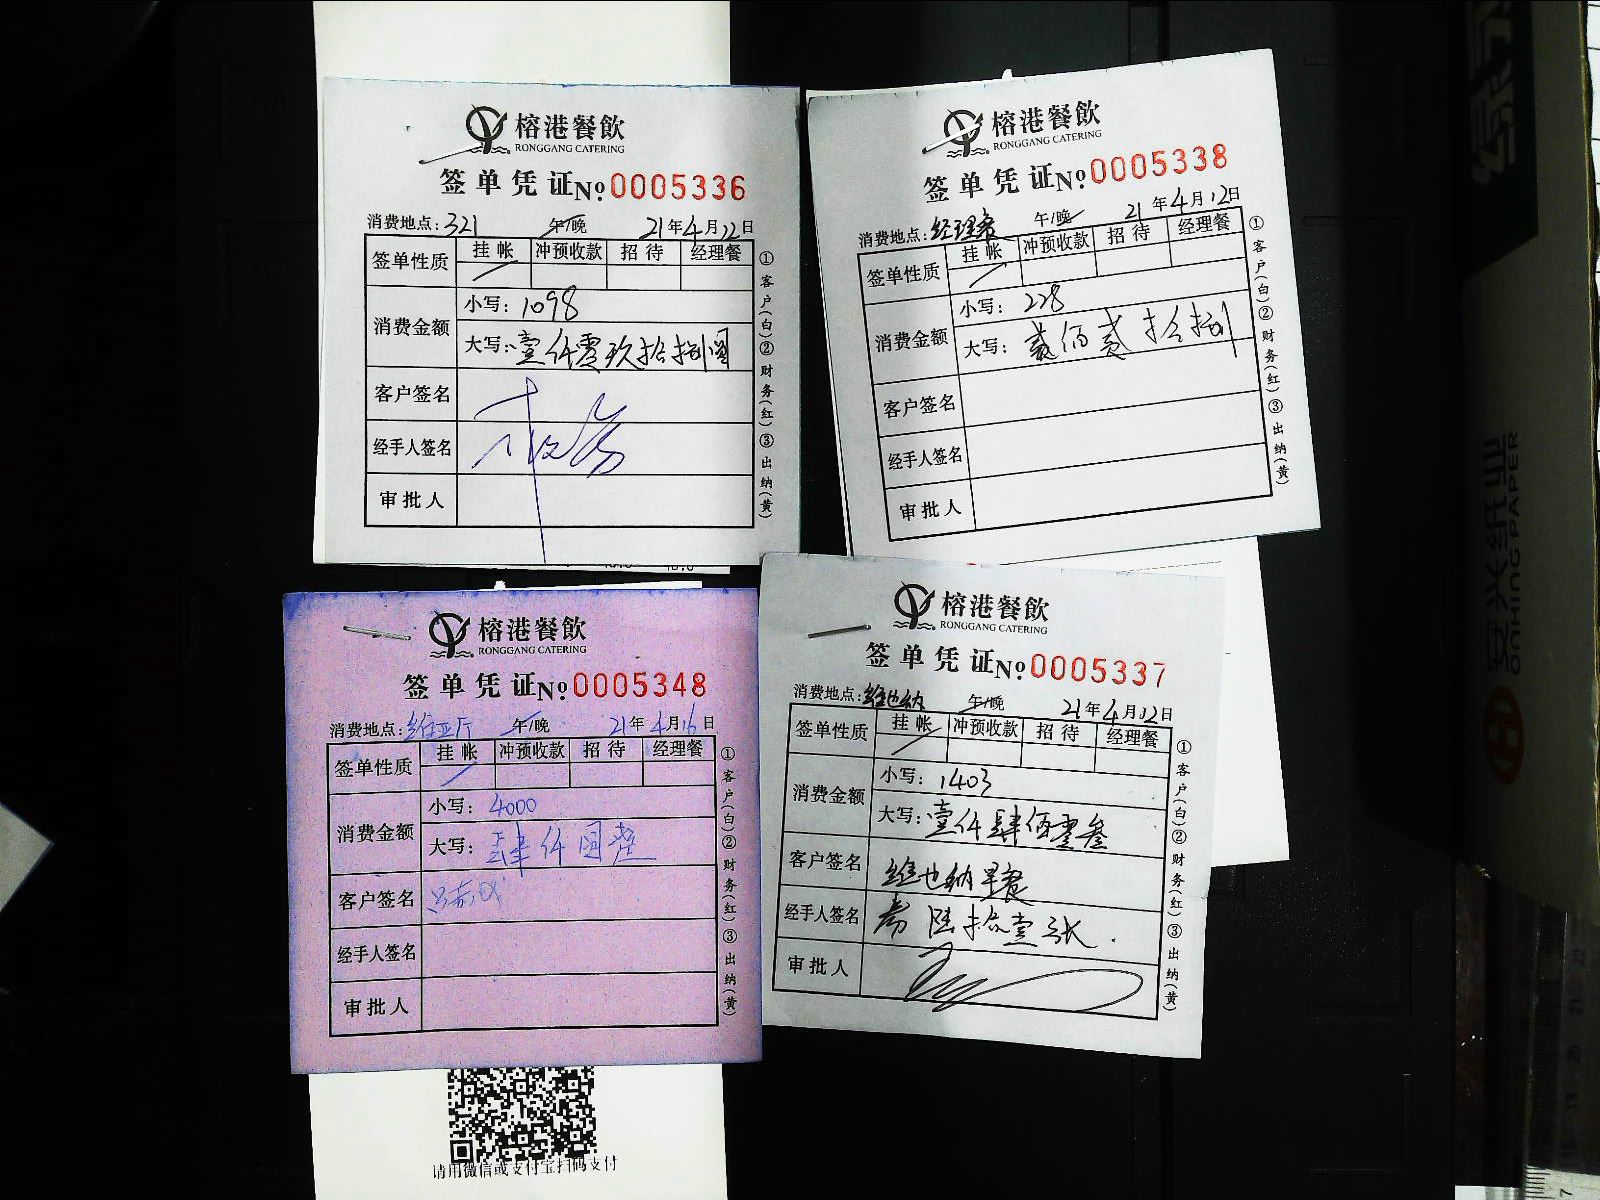 榕港餐飲
RONGGANG CATERING
签单凭证№0005336
消费地点:321 午/晚 21年4月12日
签单性质 挂帐 冲预收款 招待 经理餐
消费金额 小写:1098
大写:壹仟零玖拾捌圆
客户签名
经手人签名
审批人
①客户(白)②财务(红)③出纳(黄)
榕港餐飲
RONGGANG CATERING
签单凭证№0005338
消费地点:经理餐 午/晚 21年4月12日
签单性质 挂帐 冲预收款 招待 经理餐
消费金额 小写:228
大写:贰佰贰拾捌
客户签名
经手人签名
审批人
①客户(白)②财务(红)③出纳(黄)
榕港餐飲
RONGGANG CATERING
签单凭证№0005348
消费地点:维亚厅 午/晚 21年4月16日
签单性质 挂帐 冲预收款 招待 经理餐
消费金额 小写:4000
大写:肆仟圆整
客户签名
经手人签名
审批人
①客户(白)②财务(红)③出纳(黄)
请用微信或支付宝扫码支付
榕港餐飲
RONGGANG CATERING
签单凭证№0005337
消费地点:维也纳 午/晚 21年4月12日
签单性质 挂帐 冲预收款 招待 经理餐
消费金额 小写:1403
大写:壹仟肆佰零叁
客户签名 维也纳早餐
经手人签名 券陆拾壹张.
审批人
①客户(白)②财务(红)③出纳(黄)
安兴纸业
ONHING PAPER